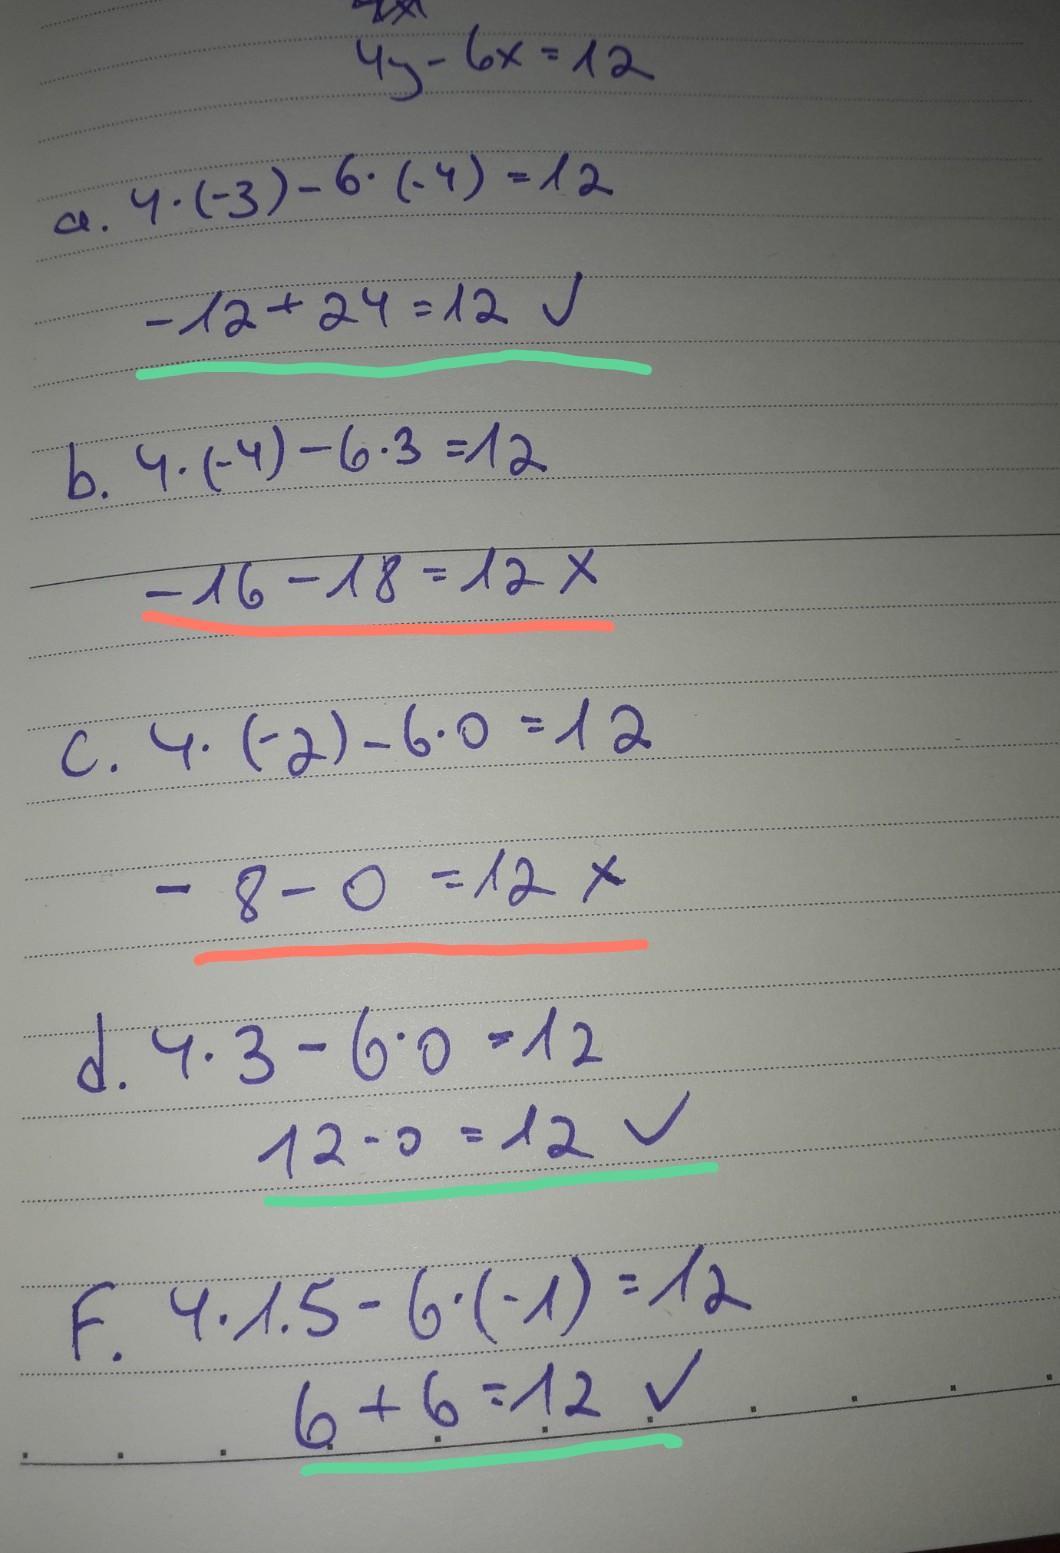 4y - 6x = 12
a. 4·(-3) - 6·(-4) = 12
-12 + 24 = 12 ✓
b. 4·(-4) - 6·3 = 12
-16 - 18 = 12 ×
c. 4·(-2) - 6·0 = 12
- 8 - 0 = 12 ×
d. 4·3 - 6·0 = 12
12 - 0 = 12 ✓
F. 4·1.5 - 6·(-1) = 12
6 + 6 = 12 ✓